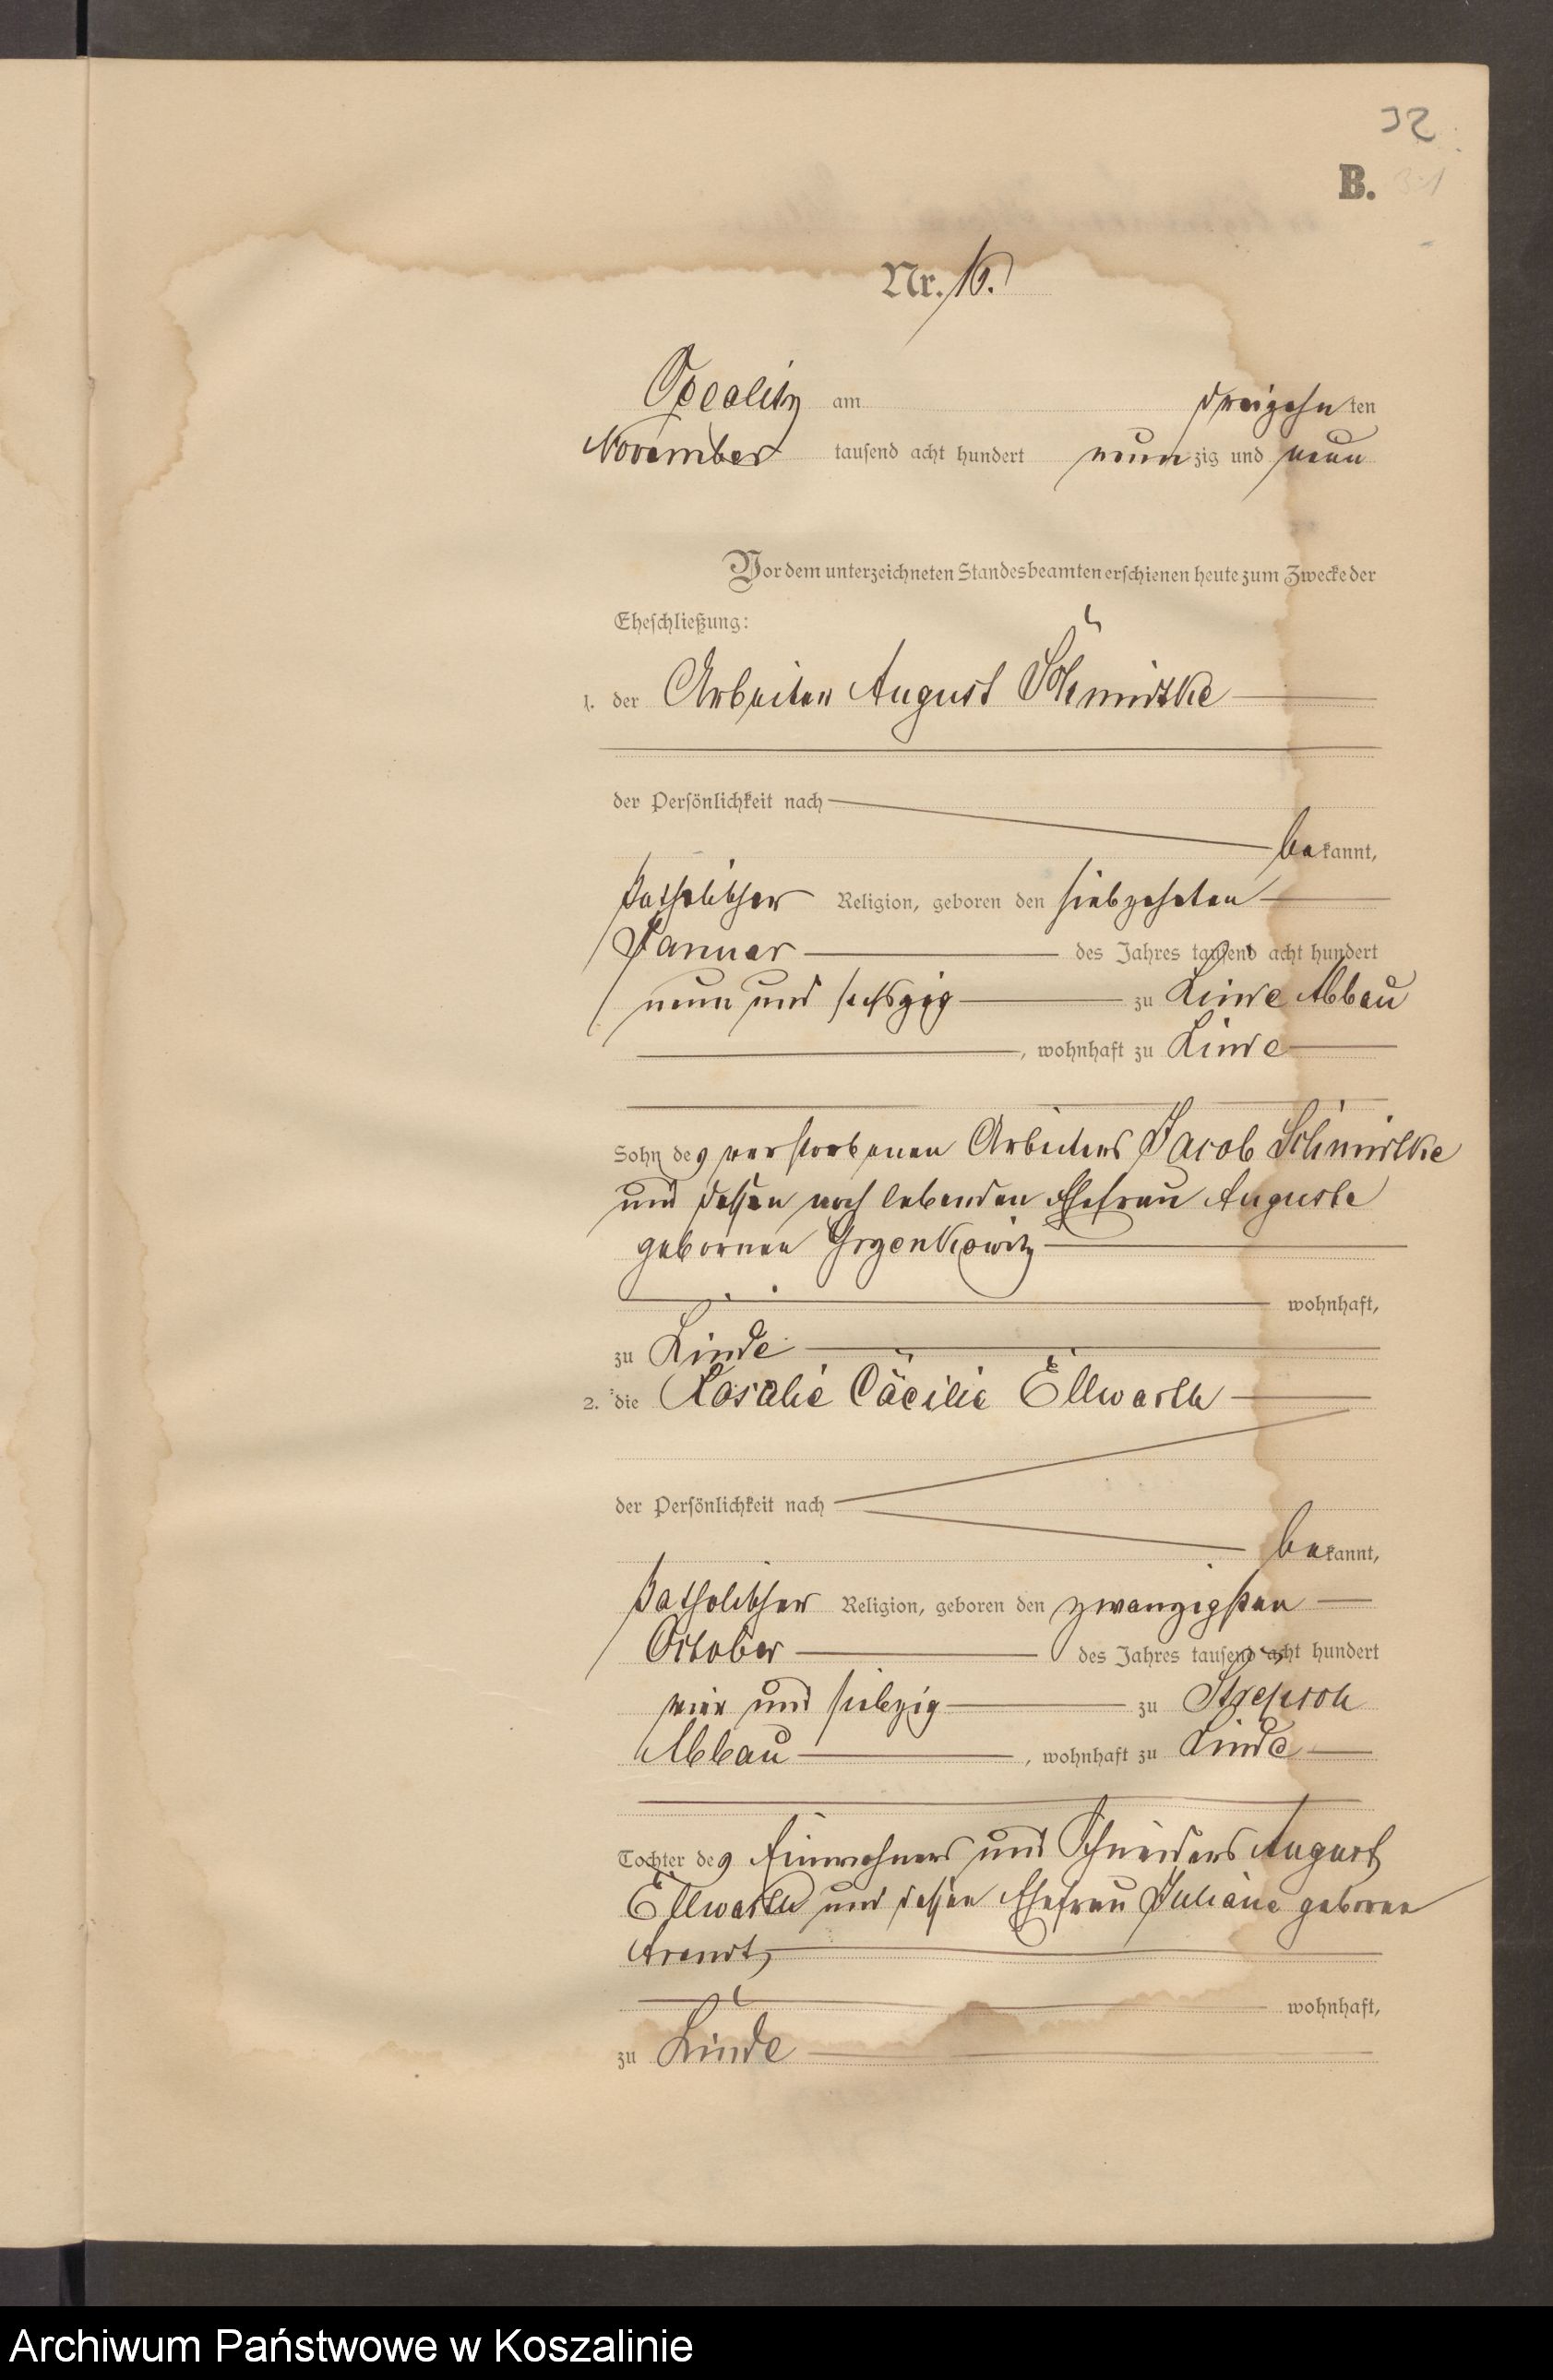 32
B.
Nr. 16.
am dreizehnten
November tausend acht hundert neunzig und neun
Vor dem unterzeichneten Standesbeamten erschienen heute zum Zwecke der
Eheschließung:
1. der Arbeiter August Schmidtke
der Persönlichkeit nach
bekannt,
katholischer Religion, geboren den siebzehnten
Januar des Jahres tausend acht hundert
neun und sechszig zu Linde Abbau
, wohnhaft zu Linde
Sohn des verstorbenen Arbeiters Jacob Schmidtke
und dessen noch lebenden Ehefrau Auguste
gebornen
wohnhaft,
zu Linde
2. die Rosalie Cäcilie Ellwarth
der Persönlichkeit nach
bekannt,
katholischer Religion, geboren den zwanzigsten
October des Jahres tausend acht hundert
vier und siebzig zu
Abbau , wohnhaft zu Linde
Tochter des Einwohners und Schneiders August
Ellwarth und dessen Ehefrau Juliane geborne
Arendt,
wohnhaft,
zu Linde
Archiwum Państwowe w Koszalinie